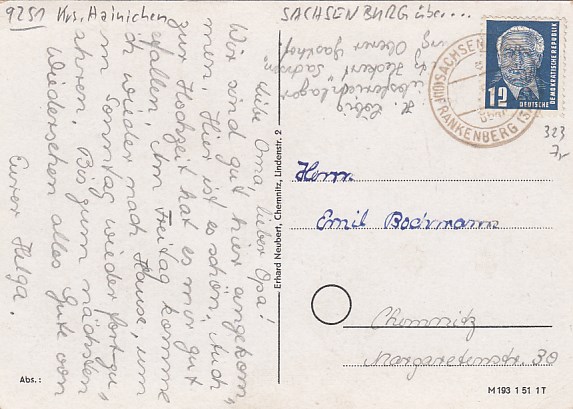 9251 Krs. Hainichen
SACHSENBURG über...
Liebe Oma, lieber Opa!
Wir sind gut hier angekom„
men. Hier ist es schön. Auch
zur Hochzeit hat es mir gut
gefallen. Am Freitag komme
ich wieder nach Hause, um
am Sonntag wieder fortzu„
fahren. Bis zum nächsten
Wiedersehen alles Gute von
Eurer Helga.
Abs.:
Erhard Neubert, Chemnitz, Lindenstr. 2
H.
Oberer Gasthof
SACHSENBURG über
FRANKENBERG (
12
DEUTSCHE
DEMOKRATISCHE REPUBLIK
323
7,-
Herrn
Emil Bochmann
Chemnitz
Margaretenstr. 30
M 193 1 51 1T